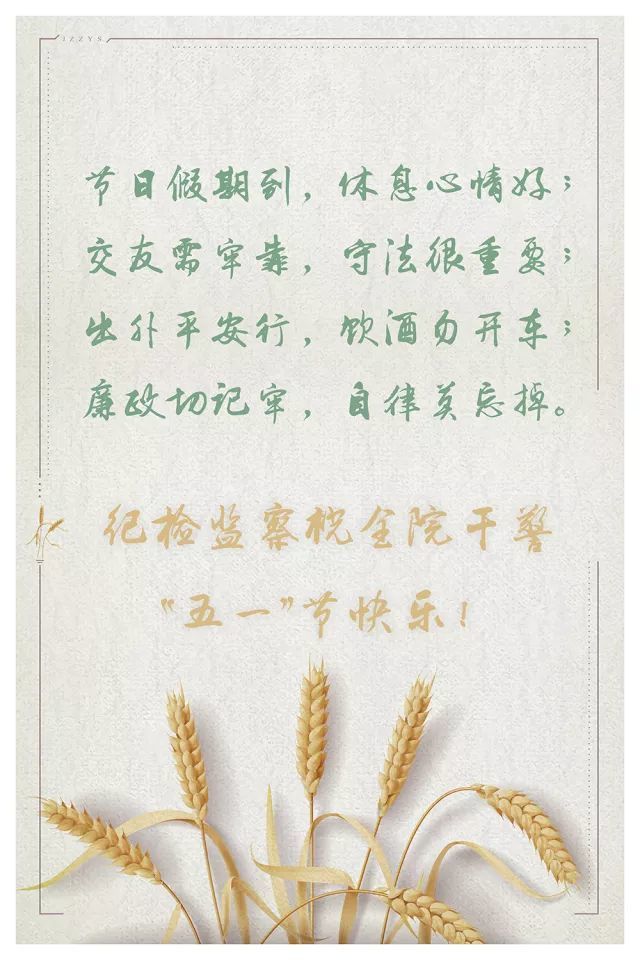 JZZYS
节日假期到，休息心情好；
交友需牢靠，守法很重要；
出外平安行，饮酒勿开车；
廉政切记牢，自律莫忘掉。
纪检监察祝全院干警
“五一”节快乐！